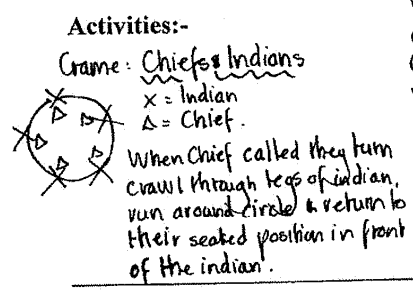 Activities:-
Game: Chiefs & Indians
X = Indian
Δ = Chief.
When Chief called they turn
crawl through legs of indian,
run around circle & return to
their seated position in front
of the indian.